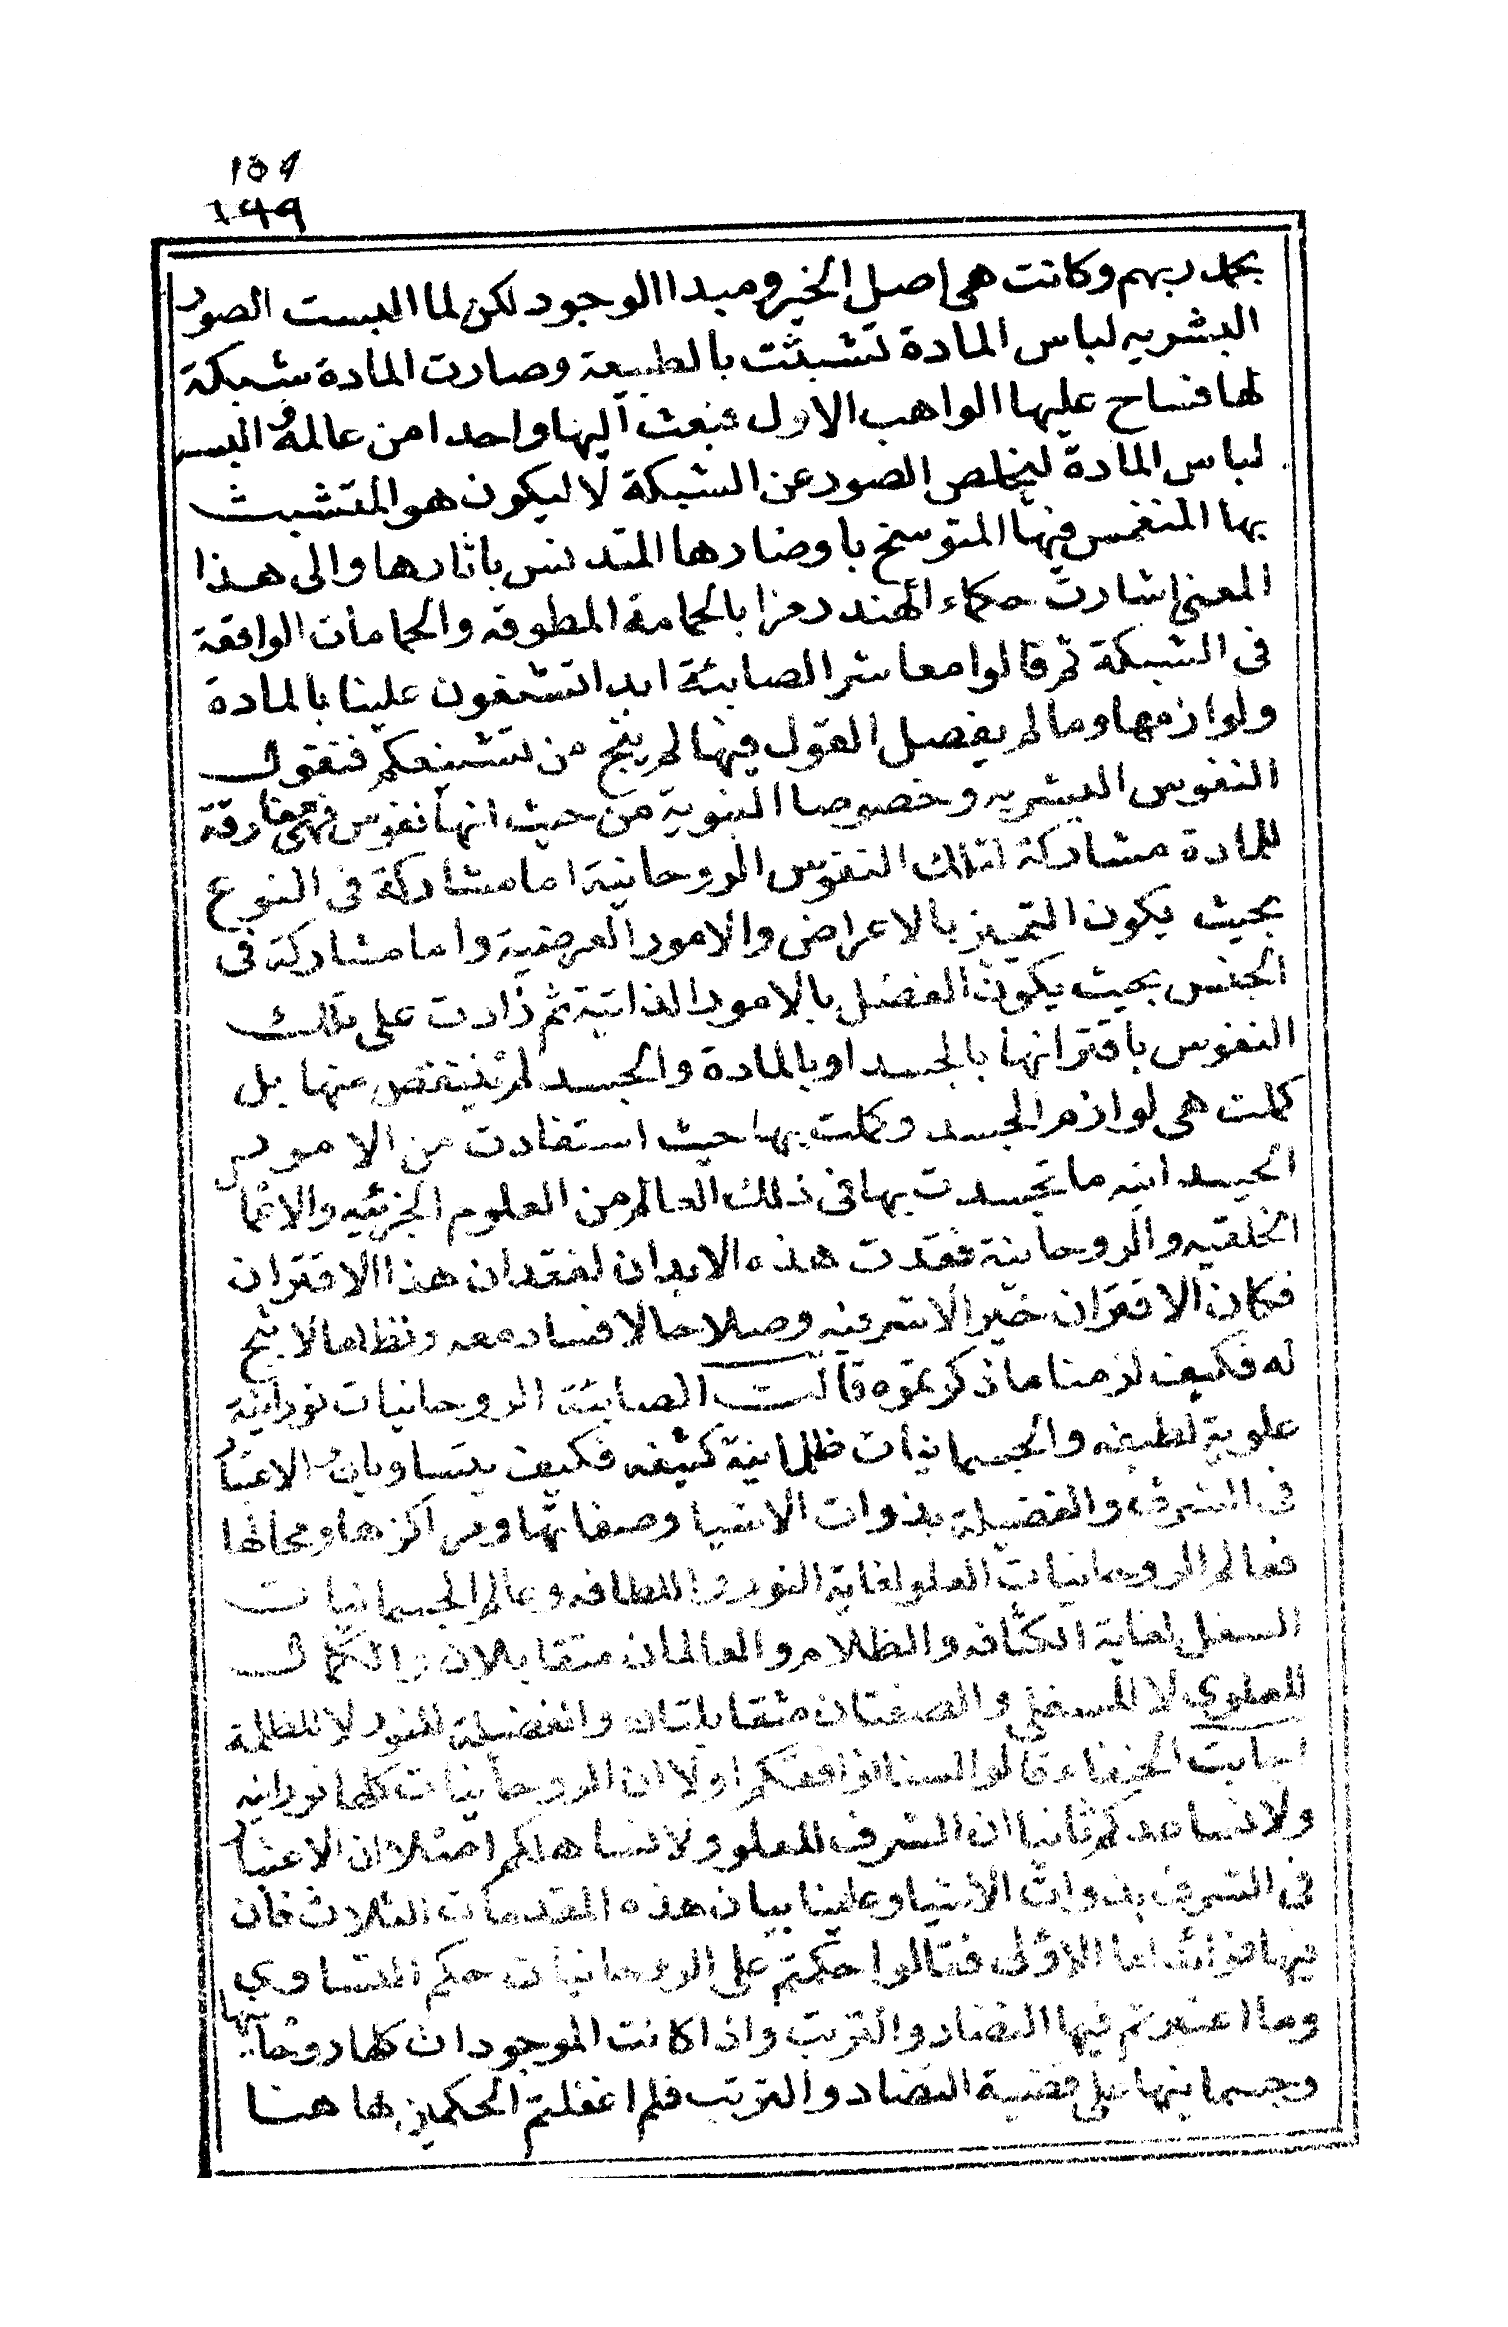 ١٥٩
١٩٩
بحمد ربهم وكانت هى اصل الخير ومبداالوجود لكن لما البست الصور
البشريه لباس المادة تشبثت بالطبيعة وصارت المادة شبكة
لها فساح عليها الواهب الاول فبعث اليها واحدا من عالمه والبس
لباس المادة ليخلص الصور عن الشبكة لا ليكون هو المتشبث
بها المنغمس فيها المتوسخ باوضارها المتدنس باثارها والى هذا
المعنى اشارت حكماء الهند رمزا بالحمامة المطوقه والحمامات الواقعة
فى الشبكة ثم قالوا معاشر الصابئة ابدا تشنعون علينا بالمادة
ولوازمها وما لم يفصل القول فيها لم ينج من تشنيعكم فنقول
النفوس البشريه وخصوصا النبوية من حيث انها نفوس فهى مفارقة
للمادة مشاركة لتلك النفوس الروحانية اما مشاركة فى النوع
بحيث يكون التميز بالاعراض والامور العرضية واما مشاركة فى
الجنس بحيث يكون الفصل بالامور الذاتية ثم زادت على تلك
النفوس باقترانها بالجسد او بالمادة والجسد لم ينتقص منها بل
كملت هى لوازم الجسد وكملت بها حيث استفادت من الامور
الجسدانيه ما تجسدت بها فى ذلك العالم من العلوم الجزئيه والاعما
الخلقيه والروحانية فقدت هذه الابدان لفقدان هذا الاقتران
فكان الاقتران خيرا لاشر فيه وصلاحا لا فساد معه ونظاما لا شج
له فكيف لزمنا ما ذكرتموه قالت الصابئة الروحانيات نورانية
علوية لطيفه والجسمانيات ظلمانية كثيفه فكيف يتساويان والاعتبا
فى الشرف والفضيلة بذوات الاشيا وصفاتها ومراكزها ومحالها
فعالم الروحانيات العلو لغاية النور واللطافه وعالم الجسمانيات
السفل لغاية الكثافه والظلام والعالمان متقابلان والكمال
للعلوي لا للسفلي والصفتان متقابلتان والفضيلة للنور لا للظلمة
اجابت الحنفاء قالوا لسنا نوافقكم اولا ان الروحانيات كلها نورانيه
ولا نساعدكم ثانيا ان الشرف للعلو ولا نساهلكم اصلا ان الاعتبا
فى الشرف بذوات الاشيا وعلينا بيان هذه المقدمات الثلاث فان
فيها فوائد اما الاولى فقالوا حكمتم على الروحانيات حكم التساوي
وما اعتبرتم فيها التضاد والترتب واذا كانت الموجودات كلها روحانيها
وجسمانيها على قضية التضاد والترتب فلم اغفلتم الحكمين ها هنا